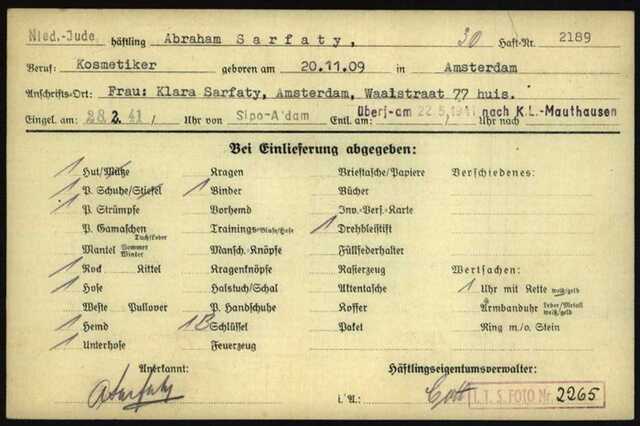 Nied.-Jude häftling Abraham Sarfaty, 30 Haft-Nr. 2189
Beruf: Kosmetiker geboren am 20.11.09 in Amsterdam
Anschrifts-Ort: Frau: Klara Sarfaty, Amsterdam, Waalstraat 77 huis.
Eingel. am 28.2.41, Uhr von Sipo-A'dam Entl. am: Überf.-am 22.5.1941 nach K.L.-Mauthausen Uhr nach
Bei Einlieferung abgegeben:
1 Hut/Mütze Kragen Brieftasche/Papiere Verschiedenes:
1 P. Schuhe/Stiefel 1 Binder Bücher
1 P. Strümpfe Vorhemd Inv.-Vers.-Karte
P. Gamaschen Tuch/Leder Trainings-Bluse/Hose 1 Drehbleistift
Mantel Sommer Winter Mansch.-Knöpfe Füllfederhalter
1 Rock Kittel Kragenknöpfe Rasierzeug Wertsachen:
1 Hose Halstuch/Schal Aktentasche 1 Uhr mit Kette weiß/gelb
Weste Pullover P. Handschuhe Koffer Armbanduhr Leder/Metall weiß/gelb
1 Hemd Schlüssel Paket Ring m./o. Stein
1 Unterhose Feuerzeug
Anerkannt: Häftlingseigentumsverwalter:
ASarfaty i. A.: I. T. S. FOTO Nr. 2265